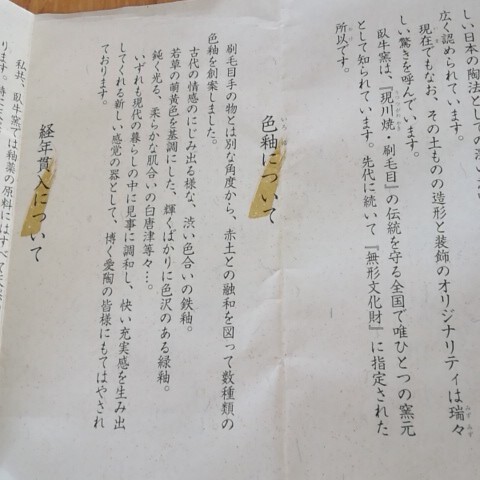 しい日本の陶法としての深い
広く認められています。
現在でもなお、その土ものの造形と装飾のオリジナリティは瑞々
しい驚きを呼んでいます。
臥牛窯は、『現川焼・刷毛目』の伝統を守る全国で唯ひとつの窯元
として知られています。先代に続いて『無形文化財』に指定された
所以です。
色釉について
刷毛目手の物とは別な角度から、赤土との融和を図って数種類の
色釉を創案しました。
古代の情感のにじみ出る様な、渋い色合いの鉄釉。
若草の萌黄色を基調にした、輝くばかりに色沢のある緑釉。
鈍く光る、柔らかな肌合いの白唐津等々…。
いずれも現代の暮らしの中に見事に調和し、快い充実感を生み出
してくれる新しい感覚の器として、博く愛陶の皆様にもてはやされ
ております。
経年貫入について
私共、臥牛窯では釉薬の原料にはすべて天